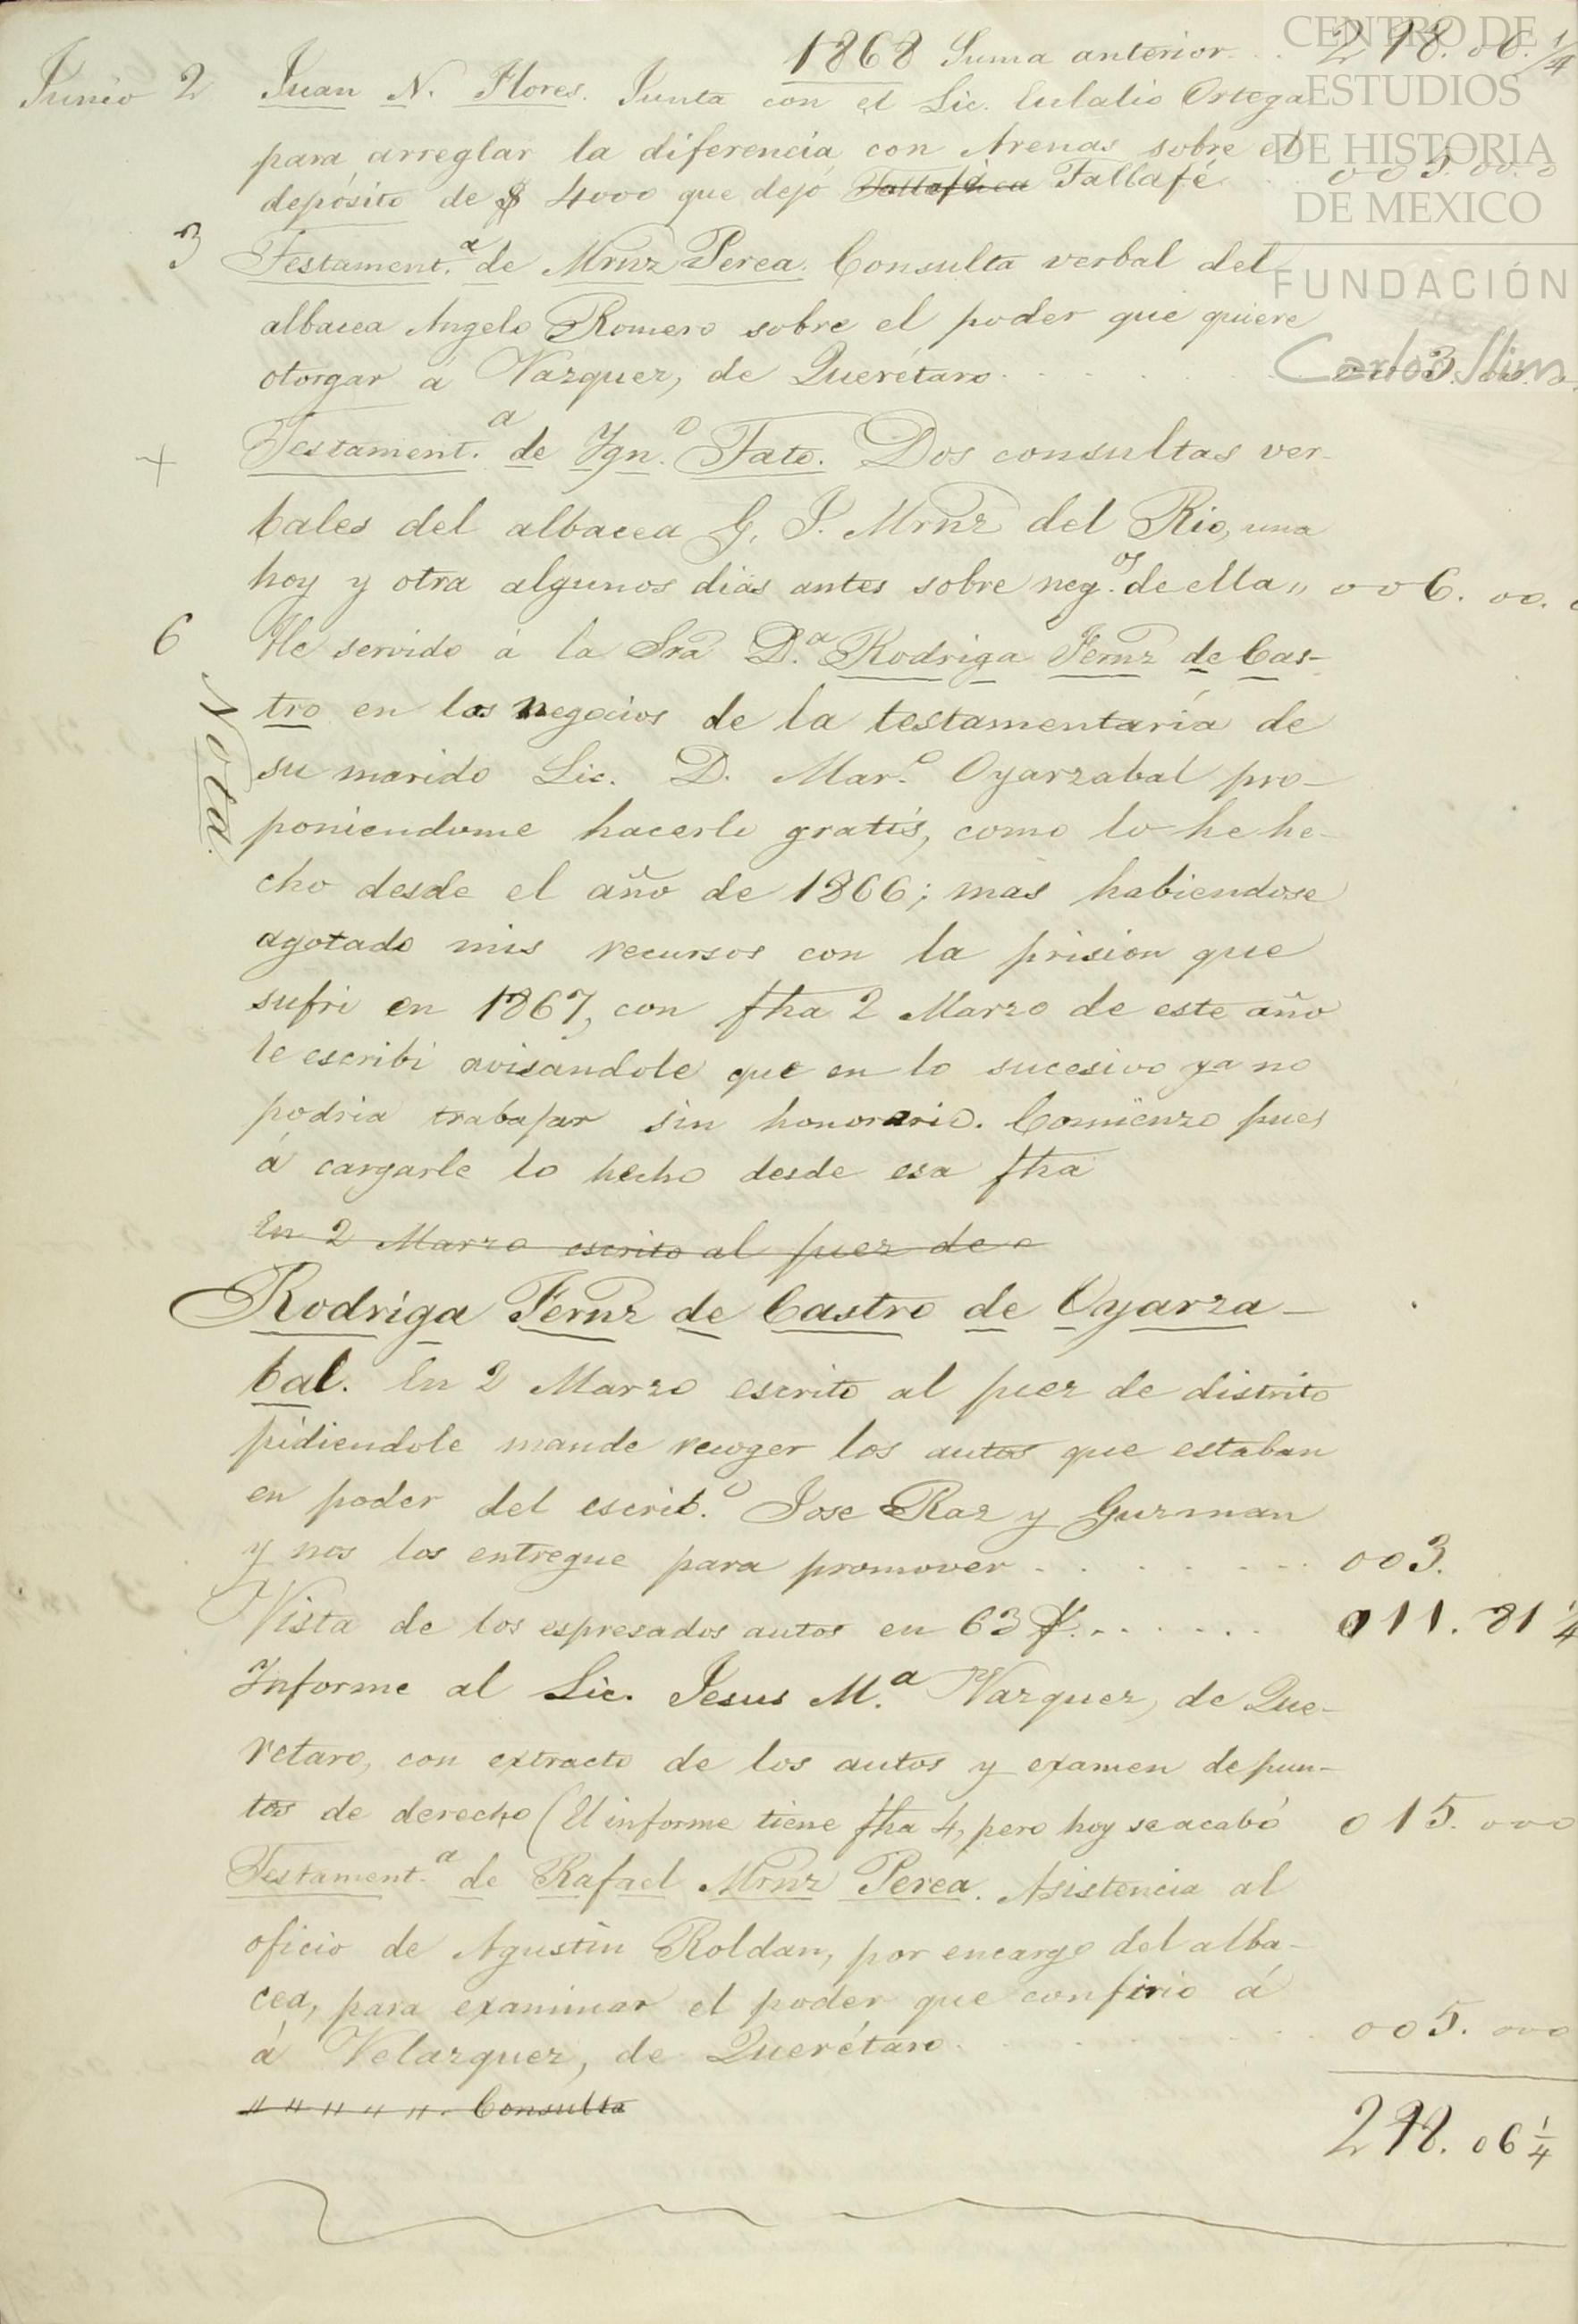 1868 Suma anterior . . 298. 06. 1/4
Junio 2 Juan N. Flores. Junta con el Lic. Eulalio Ortega
para arreglar la diferencia con Arenas sobre el
depósito de $ 4000 que dejó Tallafé . . 005. 00. 0
3 Testament.ª de Mrnz Perea. Consulta verbal del
albacea Angelo Romero sobre el poder que quiere
otorgar á Vazquez, de Querétaro . . . . 3. 00. 0
+ Testament.ª de Ygn.º Fato. Dos consultas ver-
bales del albacea G. I. Mrnz del Rio, una
hoy y otra algunos dias antes sobre neg.os de ella „ 006. 00.
6 He servido á la Sra D.ª Rodriga Fernz de Cas-
Nota.
tro en los negocios de la testamentaría de
su marido Lic. D. Mar.º Oyarzabal pro-
poniendome hacerlo gratis, como lo he he-
cho desde el año de 1866; mas habiendose
agotado mis recursos con la prision que
sufri en 1867, con fha 2 Marzo de este año
le escribi avisandole que en lo sucesivo ya no
podria trabajar sin honorario. Comienzo pues
á cargarle lo hecho desde esa fha
En 2 Marzo escrito al juez de
Rodriga Fernz de Castro de Oyarza-
bal. En 2 Marzo escrito al juez de distrito
pidiendole mande recoger los autos que estaban
en poder del escrib.º Jose Raz y Guzman
y nos los entregue para promover . . . . . . . 003.
Vista de los espresados autos en 63 f. . . . . . . 011. 81 1/4
Informe al Lic. Jesus M.ª Vazquez, de Que-
retaro, con extracto de los autos y examen de pun-
tos de derecho (El informe tiene fha 4, pero hoy se acabó 015. 000
Testament.ª de Rafael Mrnz Perea. Asistencia al
oficio de Agustin Roldan, por encargo del alba-
cea, para examinar el poder que confirió á
á Velazquez, de Querétaro . . . . 005. 000
" " " " ". Consulta
298. 06 1/4
CENTRO DE
ESTUDIOS
DE HISTORIA
DE MEXICO
FUNDACIÓN
Carlos Slim